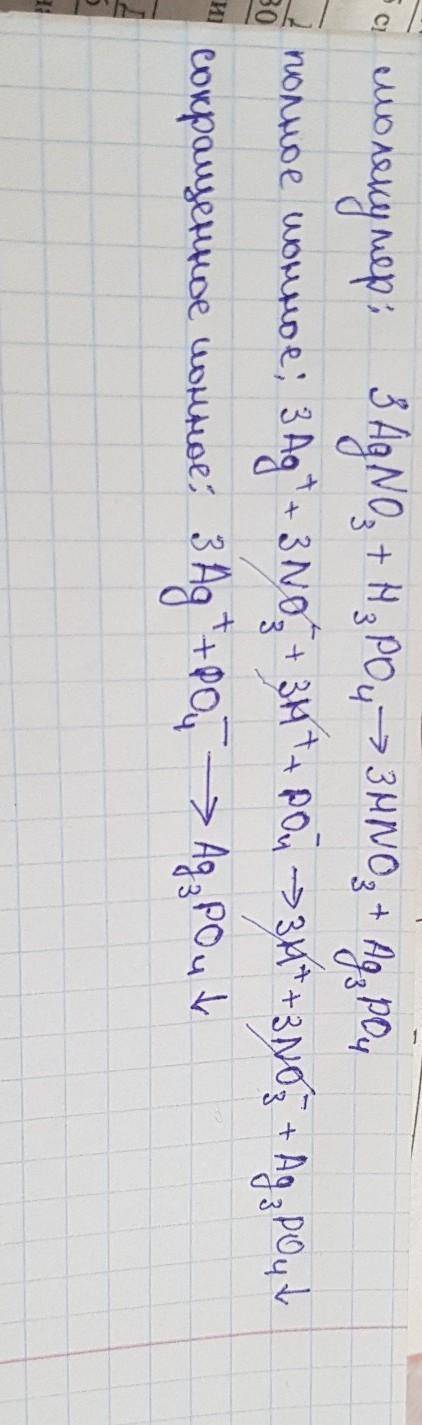 молекуляр: 3AgNO₃ + H₃PO₄ → 3HNO₃ + Ag₃PO₄
полное ионное: 3Ag⁺ + 3NO₃⁻ + 3H⁺ + PO₄⁻ → 3H⁺ + 3NO₃⁻ + Ag₃PO₄↓
сокращенное ионное: 3Ag⁺ + PO₄⁻ → Ag₃PO₄↓